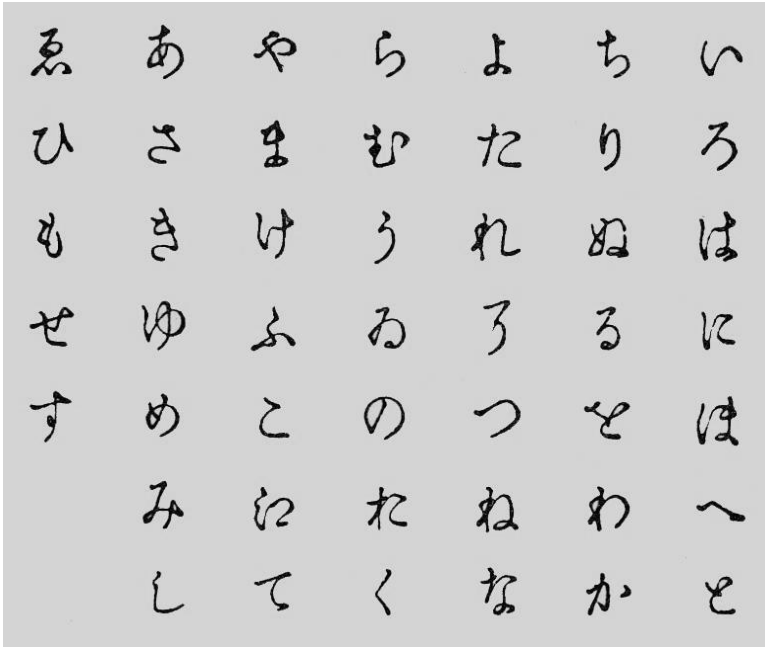 いろはにほへと
ちりぬるをわか
よたれそつねな
らむうゐのおく
やまけふこ江て
あさきゆめみし
ゑひもせす